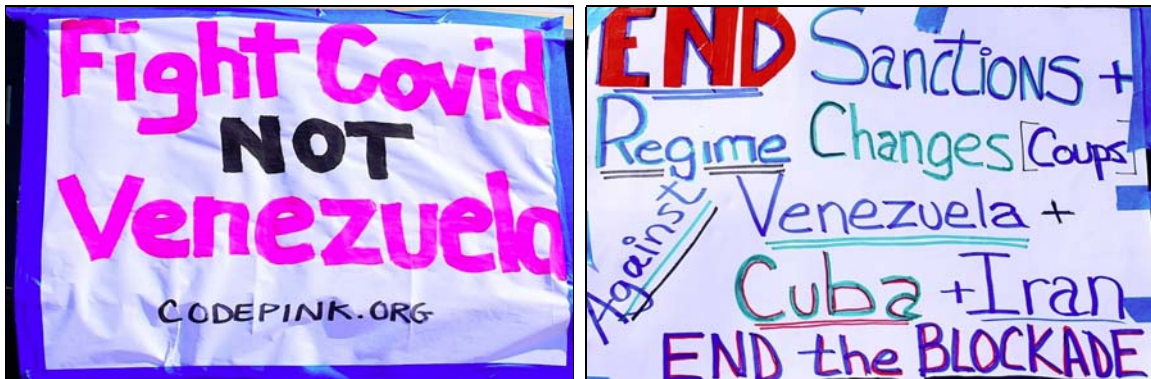 Fight Covid
NOT
Venezuela
CODEPINK.ORG
END Sanctions +
Regime Changes [Coups]
Against Venezuela +
Cuba + Iran
END the BLOCKADE